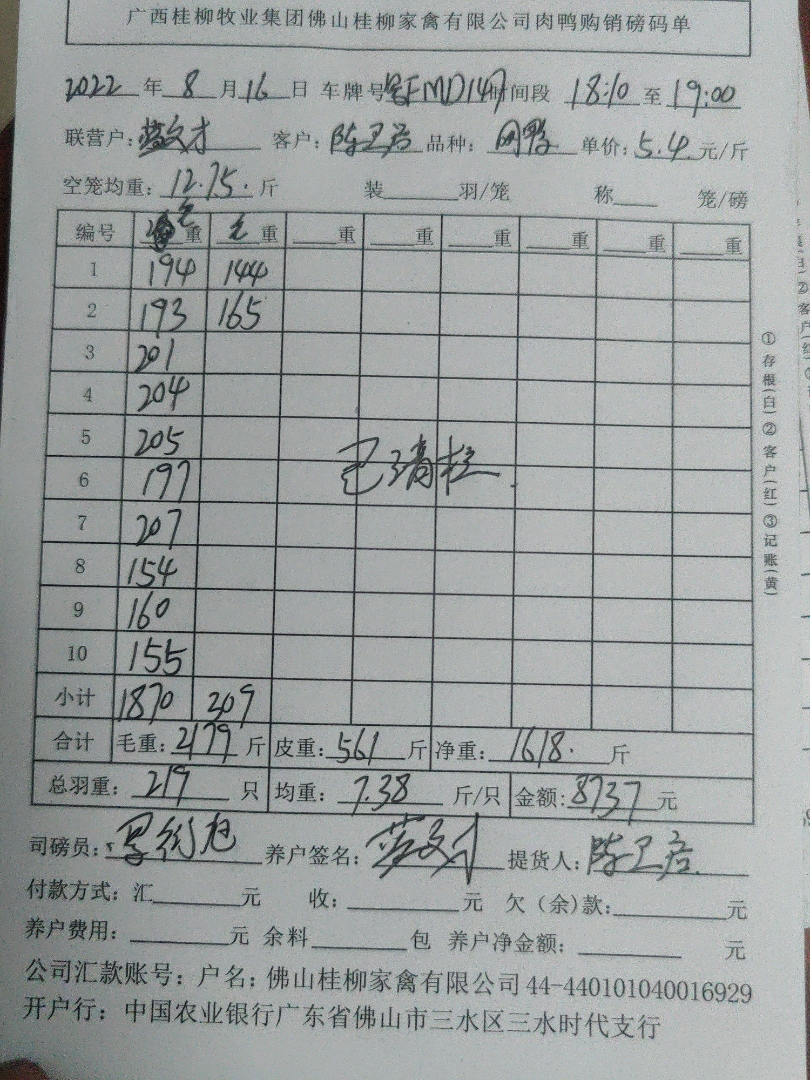 广西桂柳牧业集团佛山桂柳家禽有限公司肉鸭购销磅码单
2022 年 8 月 16 日 车牌号 MD147 时间段 18:10 至 19:00
联营户: 蓝文才 客户: 陈卫君 品种: 肉鸭 单价: 5.4 元/斤
空笼均重: 12.75. 斤 装____羽/笼 称____笼/磅
编号 毛 重 毛 重 ____重 ____重 ____重 ____重 ____重 ____重
1 194 144
2 193 165
3 201
4 204
5 205
已清栏.
6 197
7 207
8 154
9 160
10 155
小计 1870 309
合计 毛重: 2179 斤 皮重: 561 斤 净重: 1618. 斤
总羽重: 219 只 均重: 7.38 斤/只 金额: 8737 元
司磅员: 养户签名: 蓝文才 提货人: 陈卫君
付款方式: 汇____元 收: ____元 欠(余)款: ____元
养户费用: ____元 余料____包 养户净金额: ____元
公司汇款账号: 户名: 佛山桂柳家禽有限公司 44-440101040016929
开户行: 中国农业银行广东省佛山市三水区三水时代支行
①存根(白)②客户(红)③记账(黄)